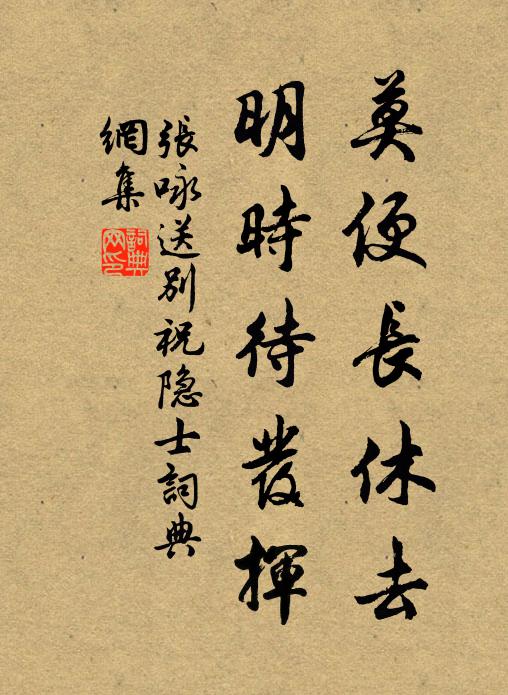 莫便長休去
明時待發揮
張咏送別祝隐士詞典
網集
詞典
网印